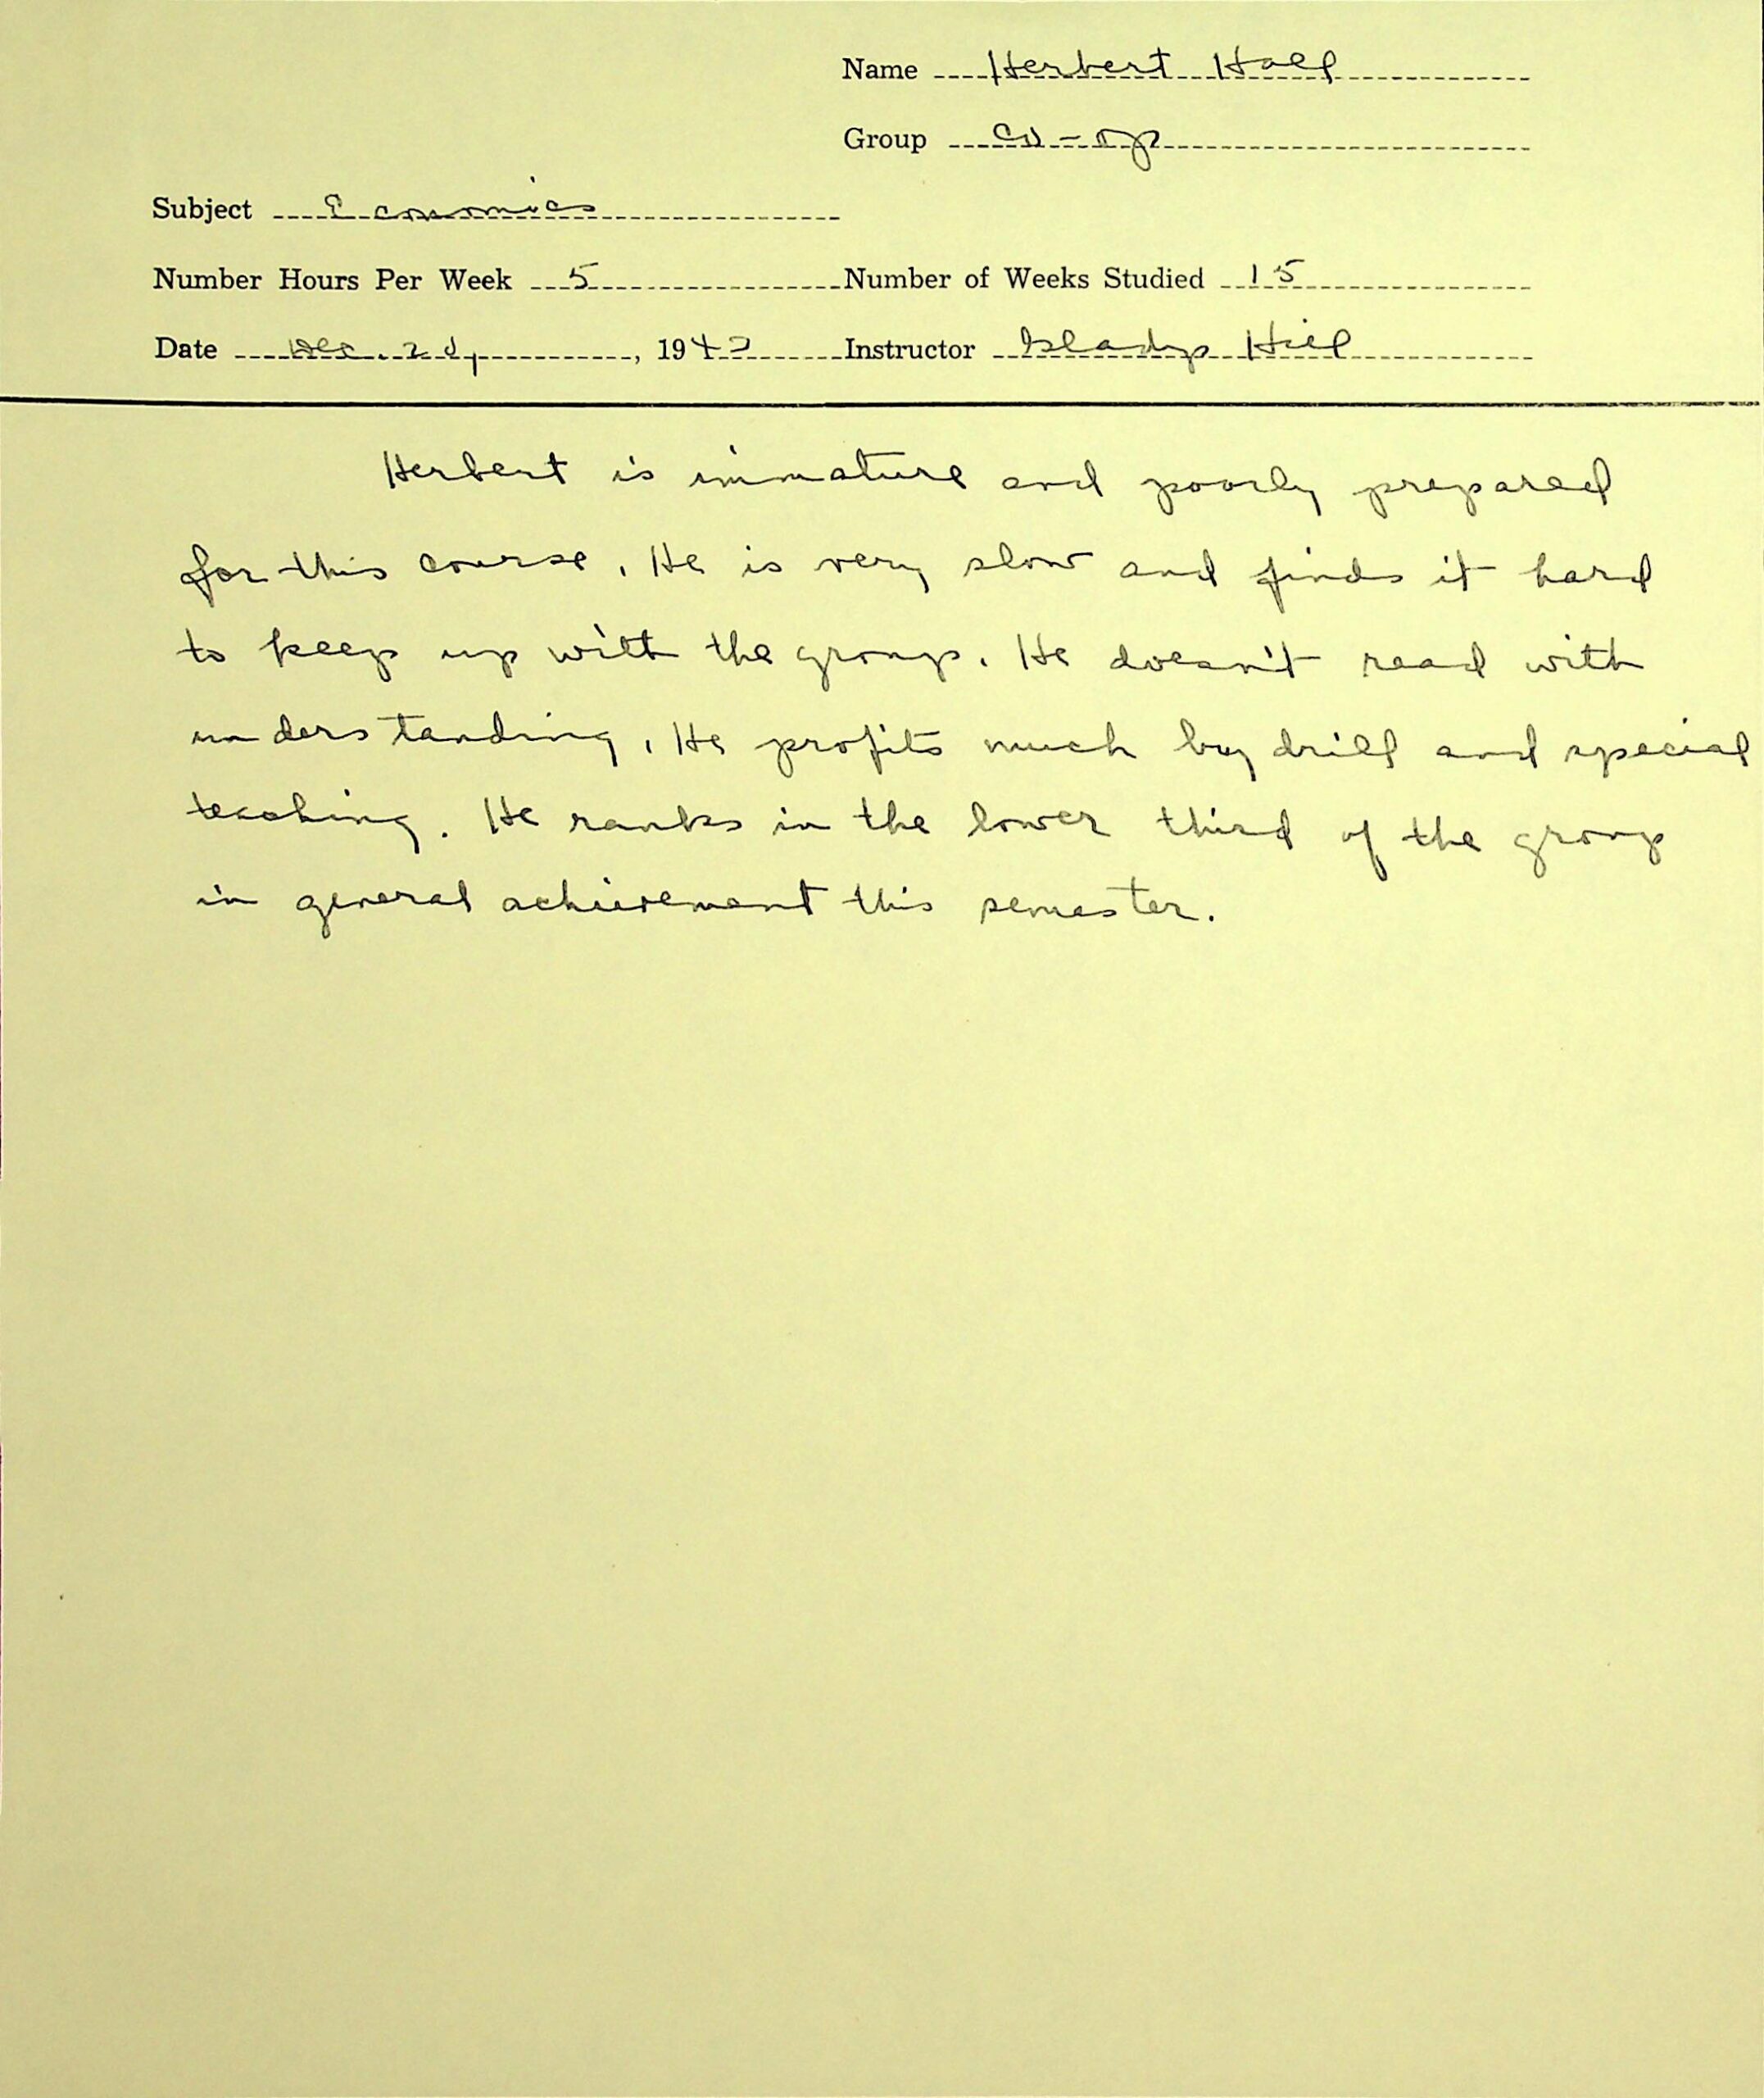 Name Herbert Hall
Group Co-op
Subject Economics
Number Hours Per Week 5 Number of Weeks Studied 15
Date Dec. 21, 1942 Instructor Gladys Hill
Herbert is immature and poorly prepared
for this course. He is very slow and finds it hard
to keep up with the group. He doesn't read with
understanding. He profits much by drill and special
teaching. He ranks in the lower third of the group
in general achievement this semester.